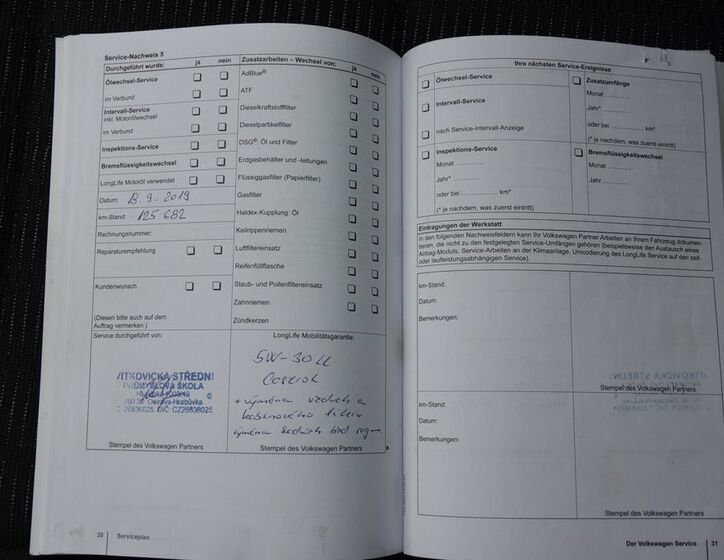 Service-Nachweis 5
Durchgeführt wurde: ja nein
Ölwechsel-Service
im Verbund
Intervall-Service
inkl. Motorölwechsel
im Verbund
Inspektions-Service
Bremsflüssigkeitswechsel
LongLife Motoröl verwendet
Datum: 18.9.2019
km-Stand: 125 682
Rechnungsnummer:
Reparaturempfehlung
Kundenwunsch
(Diesen bitte auch auf dem
Auftrag vermerken.)
Service durchgeführt von:
VÍTKOVICKÁ STŘEDNÍ
PRŮMYSLOVÁ ŠKOLA
700 30 Ostrava-Hrabůvka
26836025, DIČ: CZ26836025
Stempel des Volkswagen Partners
Zusatzarbeiten – Wechsel von: ja nein
AdBlue®
ATF
Dieselkraftstofffilter
Dieselpartikelfilter
DSG®: Öl und Filter
Erdgasbehälter und -leitungen
Flüssiggasfilter (Papierfilter)
Gasfilter
Haldex-Kupplung: Öl
Keilrippenriemen
Luftfiltereinsatz
Reifenfüllflasche
Staub- und Pollenfiltereinsatz
Zahnriemen
Zündkerzen
LongLife Mobilitätsgarantie:
5W-30LL
Castrol
+ výměna vzduch a
kabinového filtru
výměna
Stempel des Volkswagen Partners
30 Serviceplan
Ihre nächsten Service-Ereignisse
Ölwechsel-Service
Intervall-Service
nach Service-Intervall-Anzeige
Inspektions-Service
Monat ............
Jahr* ............
oder bei ............ km*
(* je nachdem, was zuerst eintritt)
Zusatzumfänge
Monat ............
Jahr* ............
oder bei ............ km*
(* je nachdem, was zuerst eintritt)
Bremsflüssigkeitswechsel
Monat ............
Jahr ............
Eintragungen der Werkstatt
In den folgenden Nachweisfeldern kann Ihr Volkswagen Partner Arbeiten an Ihrem Fahrzeug dokumen-
tieren, die nicht zu den festgelegten Service-Umfängen gehören (beispielsweise den Austausch eines
Airbag-Moduls, Service-Arbeiten an der Klimaanlage, Umcodierung des LongLife Service auf den zeit-
oder laufleistungsabhängigen Service).
km-Stand:
Datum:
Bemerkungen:
Stempel des Volkswagen Partners
km-Stand:
Datum:
Bemerkungen:
Stempel des Volkswagen Partners
Der Volkswagen Service 31